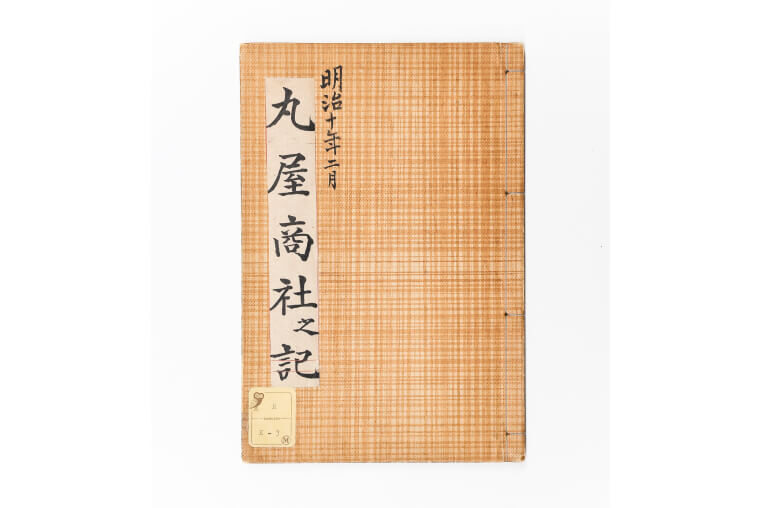 明治十年二月
丸屋商社之記